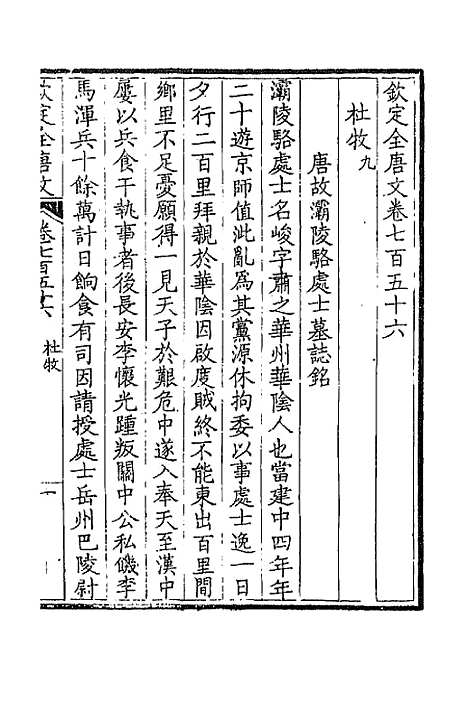 欽定全唐文卷七百五十六
杜牧九
唐故灞陵駱處士墓誌銘
灞陵駱處士名峻字肅之華州華陰人也當建中四年年
二十遊京師值泚亂為其黨源休拘委以事處士逸一日
夕行二百里拜親於華陰因啟度賊終不能東出百里間
鄉里不足憂願得一見天子於艱危中遂入奉天至漢中
屢以兵食干執事者後長安李懷光踵叛關中公私饑李
馬渾兵十餘萬計日餉食有司因請授處士岳州巴陵尉
欽定全唐文
卷七百五十六
杜牧
一